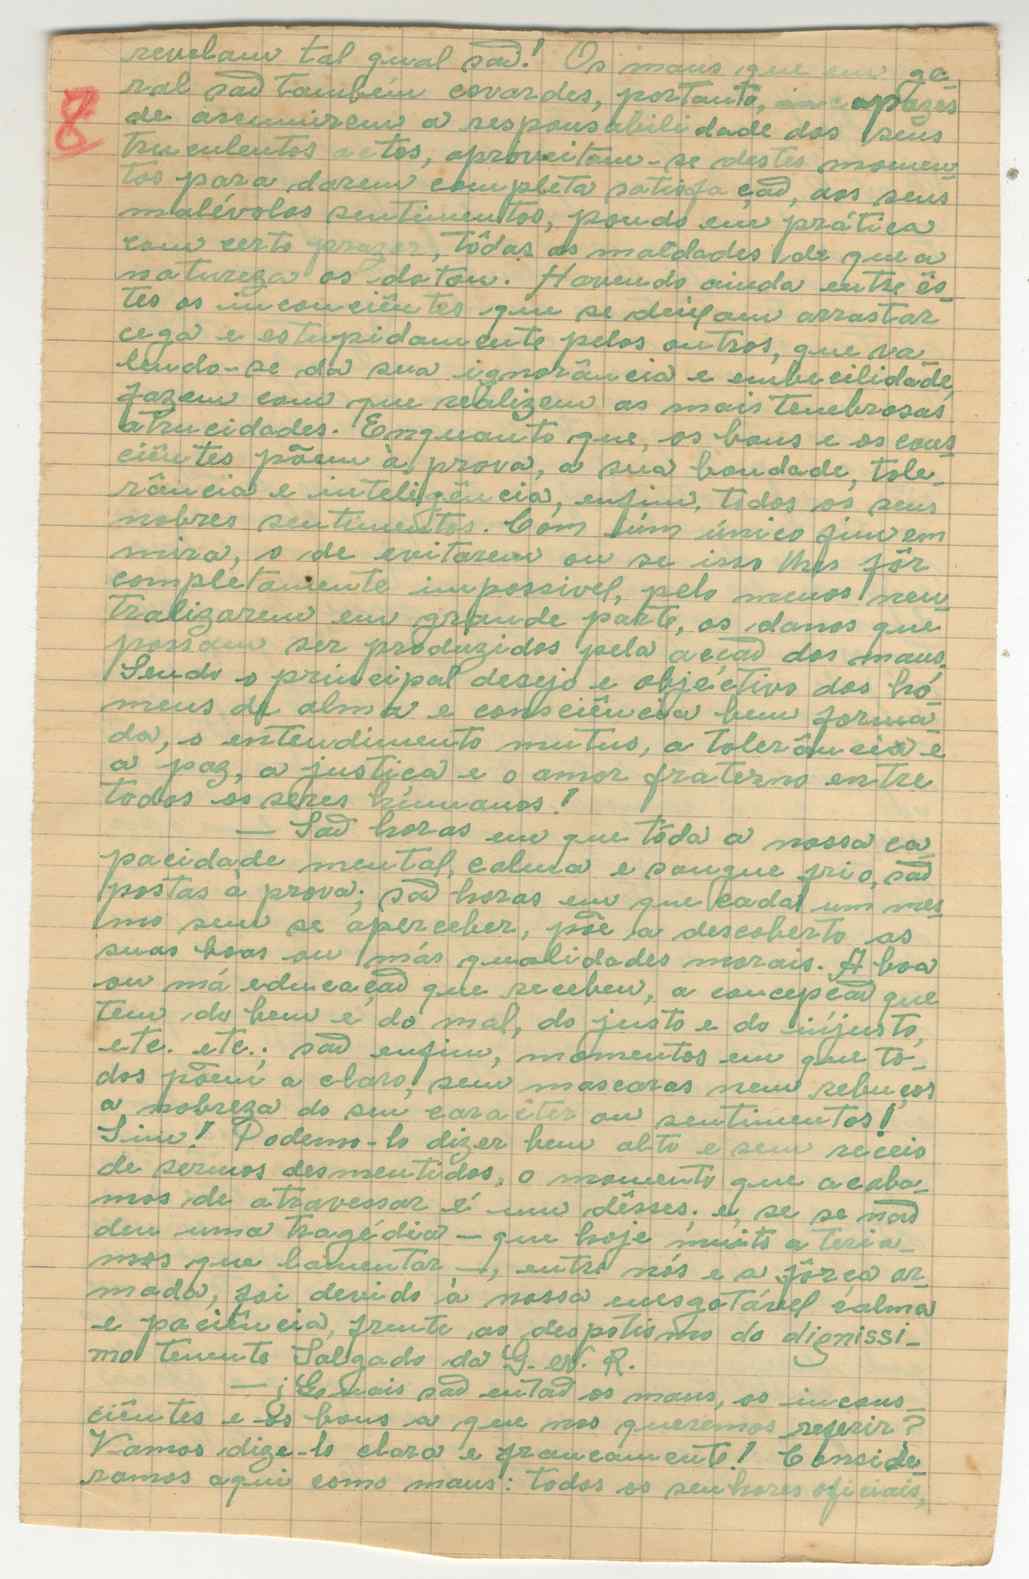 8
revelam tal qual são! Os maus que em ge-
ral são também covardes, portanto, incapazes
de assumirem a responsabilidade dos seus
truculentos actos, aproveitam-se destes momen-
tos para darem completa satisfação, aos seus
malévolos sentimentos, pondo em prática
com certo prazer, tôdas as maldades de que a
natureza os dotou. Havendo ainda entre ês-
tes os inconciêntes que se deixam arrastar
cega e estupidamente pelos outros, que va-
lendo-se da sua ignorância e embecilidade,
fazem com que realizem as mais tenebrosas
atrucidades. Enquanto que, os bons e os cons-
ciêntes põem à prova, a sua bondade, tole-
rância e inteligência, enfim, todos os seus
nobres sentimentos. Com úm único fim em
mira, o de evitarem ou se isso lhes fôr
completamente impossivel, pelo menos neu-
tralizarem em grande parte, os danos que
possam ser produzidos pela acção dos maus.
Sendo o principal desejo e objéctivo dos hó-
mens de alma e consciência bem forma-
da, o entendimento mutuo, a tolerância e
a paz, a justiça e o amor fraterno entre
todos os seres húmanos!
— São horas em que tôda a nossa ca-
pacidade mental, calma e sangue frio, são
postas à prova; são horas em que cada um mes-
mo sem se áperceber, põe a descoberto as
suas boas ou más qualidades morais. A boa
ou má educação que recebeu, a concepção que
tem do bem e do mal, do justo e do injusto,
etc. etc.; são enfim, momentos em que to-
dos põem a claro, sem mascaras nem rebuços
a nobreza do seu caracter ou sentimentos!
Sim! Podemo-lo dizer bem alto e sem receio
de sermos desmentidos, o momento que acaba-
mos de atravessar é um dêsses; e, se se não
deu uma tragédia — que hoje muito a teria-
mos que lamentar —, entre nós e a fôrça ar-
mada, foi devido à nossa inesgotável calma
e paciência, frente ao despotismo do dignissi-
mo tenente Salgado da G. N. R.
— ¿Quais são então os maus, os incons-
ciêntes e os bons a que nos queremos referir?
Vamos dize-lo clara e francamente! Conside-
ramos aqui como maus: todos os senhores oficiais,